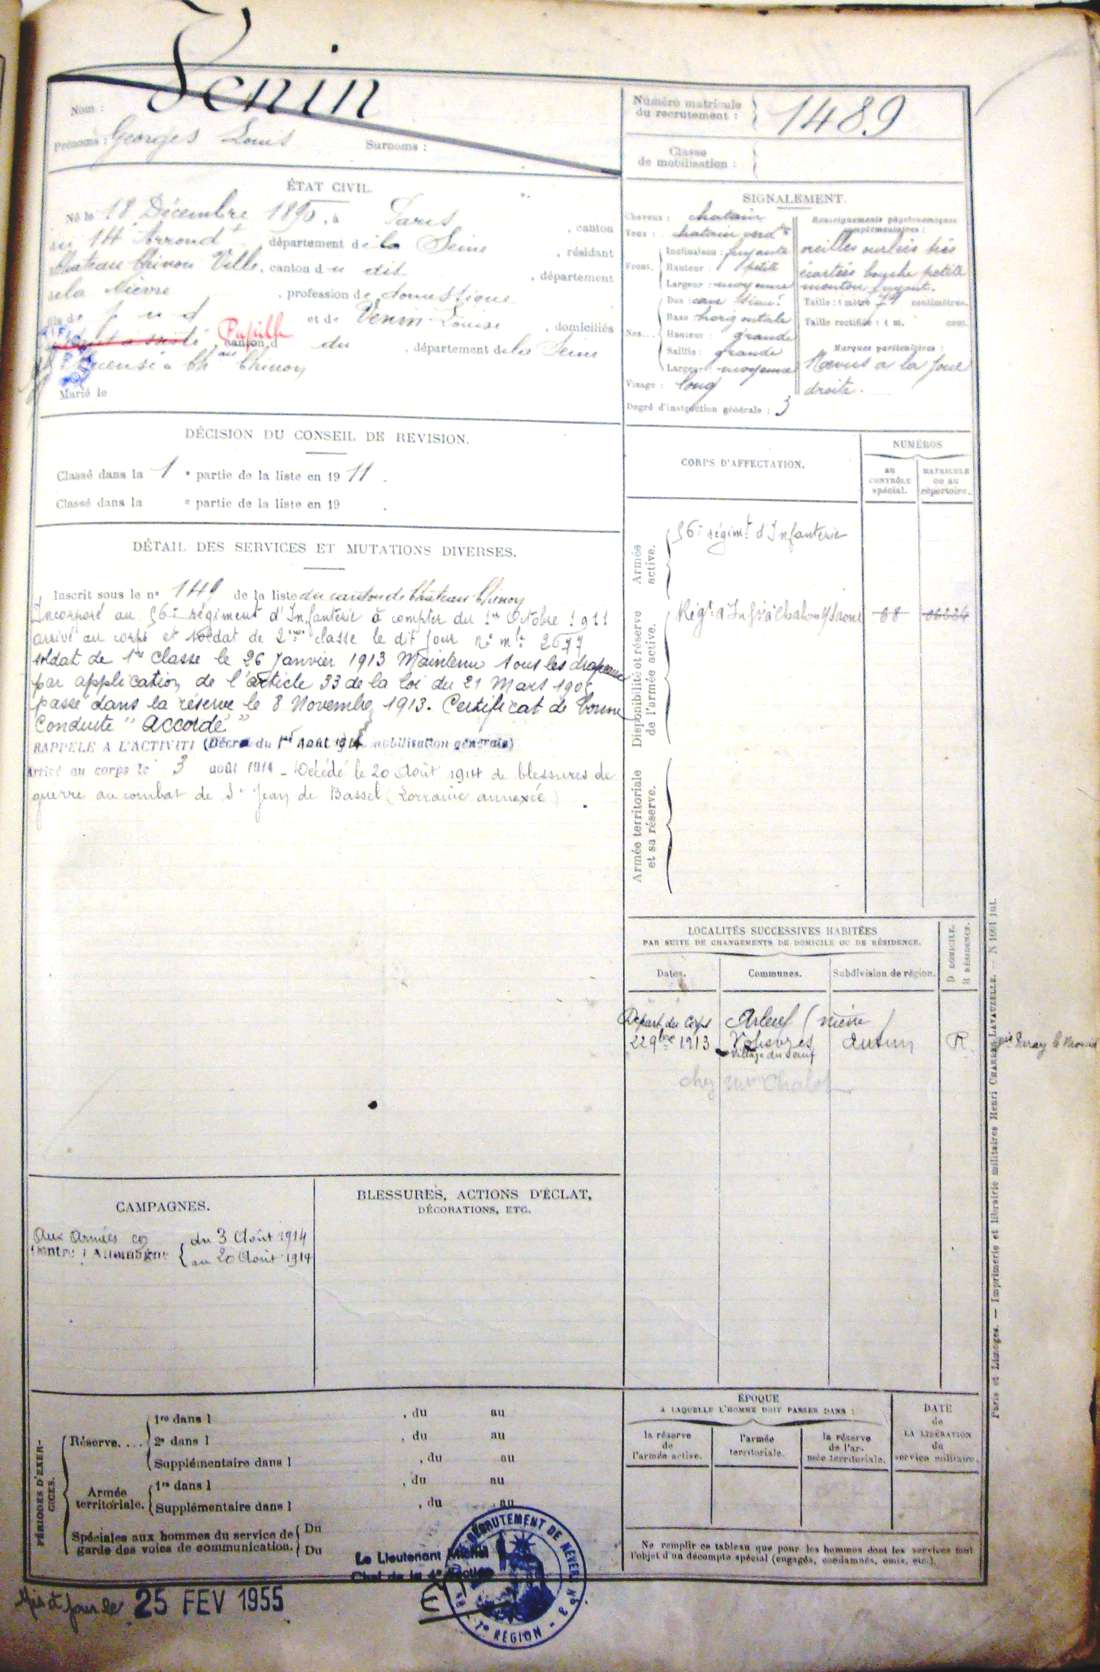 Nom : Venin
Prénoms : Georges Louis Surnoms :
Numéro matricule du recrutement : 1489
Classe de mobilisation :
ÉTAT CIVIL.
Né le 18 Décembre 1890, à Paris, canton
14e Arrondt département de la Seine, résidant
Château Chinon Ville, canton du dit, département
de la Nièvre, profession de domestique
fils de et de Venin Louise, domiciliés
Pupille canton d du, département de la Seine
recensé à Ch au Chinon
Marié le
SIGNALEMENT.
Cheveux : chatain
Yeux : chatain verdt
Front. Inclinaison : fuyante
Hauteur : petite
Largeur : moyenne
Nez... Dos :
Base horizontale
Hauteur : grande
Saillie : grande
Largeur : moyenne
Visage : long
Degré d'instruction générale : 3
Renseignements physionomiques complémentaires :
oreilles ourlées très
écartées bouche petite
menton fuyant.
Taille : 1 mètre 71 centimètres.
Taille rectifiée : 1 m. cent.
Marques particulières :
Noevus à la joue
droite.
DÉCISION DU CONSEIL DE REVISION.
Classé dans la 1e partie de la liste en 1911.
Classé dans la e partie de la liste en 19 .
DÉTAIL DES SERVICES ET MUTATIONS DIVERSES.
Inscrit sous le n° 149 de la liste du canton de Château Chinon
Incorporé au 56e régiment d'Infanterie à compter du 1er Octobre 1911
arrivé au corps et soldat de 2ème classe le dit jour n° mle 2677
soldat de 1re classe le 26 Janvier 1913 Maintenu sous les drapeaux
par application de l'article 33 de la loi du 21 Mars 1905
passé dans la réserve le 8 Novembre 1913. Certificat de bonne
Conduite "Accordé"
RAPPELÉ A L'ACTIVITÉ (Décret du 1er Août 1914 mobilisation générale)
Arrivé au corps le 3 août 1914 - Décédé le 20 Août 1914 de blessures de
guerre au combat de St Jean de Bassel (Lorraine annexée)
CORPS D'AFFECTATION.
NUMÉROS
AU CONTRÔLE spécial.
MATRICULE OU AU répertoire.
Armée active.
56e régimt d'Infanterie
Disponibilité et réserve de l'armée active.
Régt d'Infie à Chalon s/Saone 68
Armée territoriale et sa réserve.
LOCALITÉS SUCCESSIVES HABITÉES
PAR SUITE DE CHANGEMENTS DE DOMICILE OU DE RÉSIDENCE.
Dates. Communes. Subdivision de région. D DOMICILE. R RÉSIDENCE.
Départ du Corps Arleuf (Nièvre)
22 9bre 1913 Autun R.
Village du
chez Mr Chalot
CAMPAGNES.
Aux Armées
Contre l'Allemagne { du 3 Août 1914
au 20 Août 1914
BLESSURES, ACTIONS D'ÉCLAT,
DÉCORATIONS, ETC.
PÉRIODES D'EXERCICES.
Réserve.... 1re dans l , du au
2e dans l , du au
Supplémentaire dans l , du au
Armée territoriale. 1re dans l , du au
Supplémentaire dans l , du au
Spéciales aux hommes du service de garde des voies de communication. Du
Du
ÉPOQUE
A LAQUELLE L'HOMME DOIT PASSER DANS :
la réserve de l'armée active.
l'armée territoriale.
la réserve de l'armée territoriale.
DATE de LA LIBÉRATION du service militaire.
Ne remplir ce tableau que pour les hommes dont les services font
l'objet d'un décompte spécial (engagés, condamnés, omis, etc.).
Paris et Limoges. — Imprimerie et librairie militaires Henri CHARLES-LAVAUZELLE.
Le Lieutenant Michel
Chef de la 4e Section
RECRUTEMENT DE NEVERS N° 3
7e RÉGION
Mis à jour le 25 FEV 1955